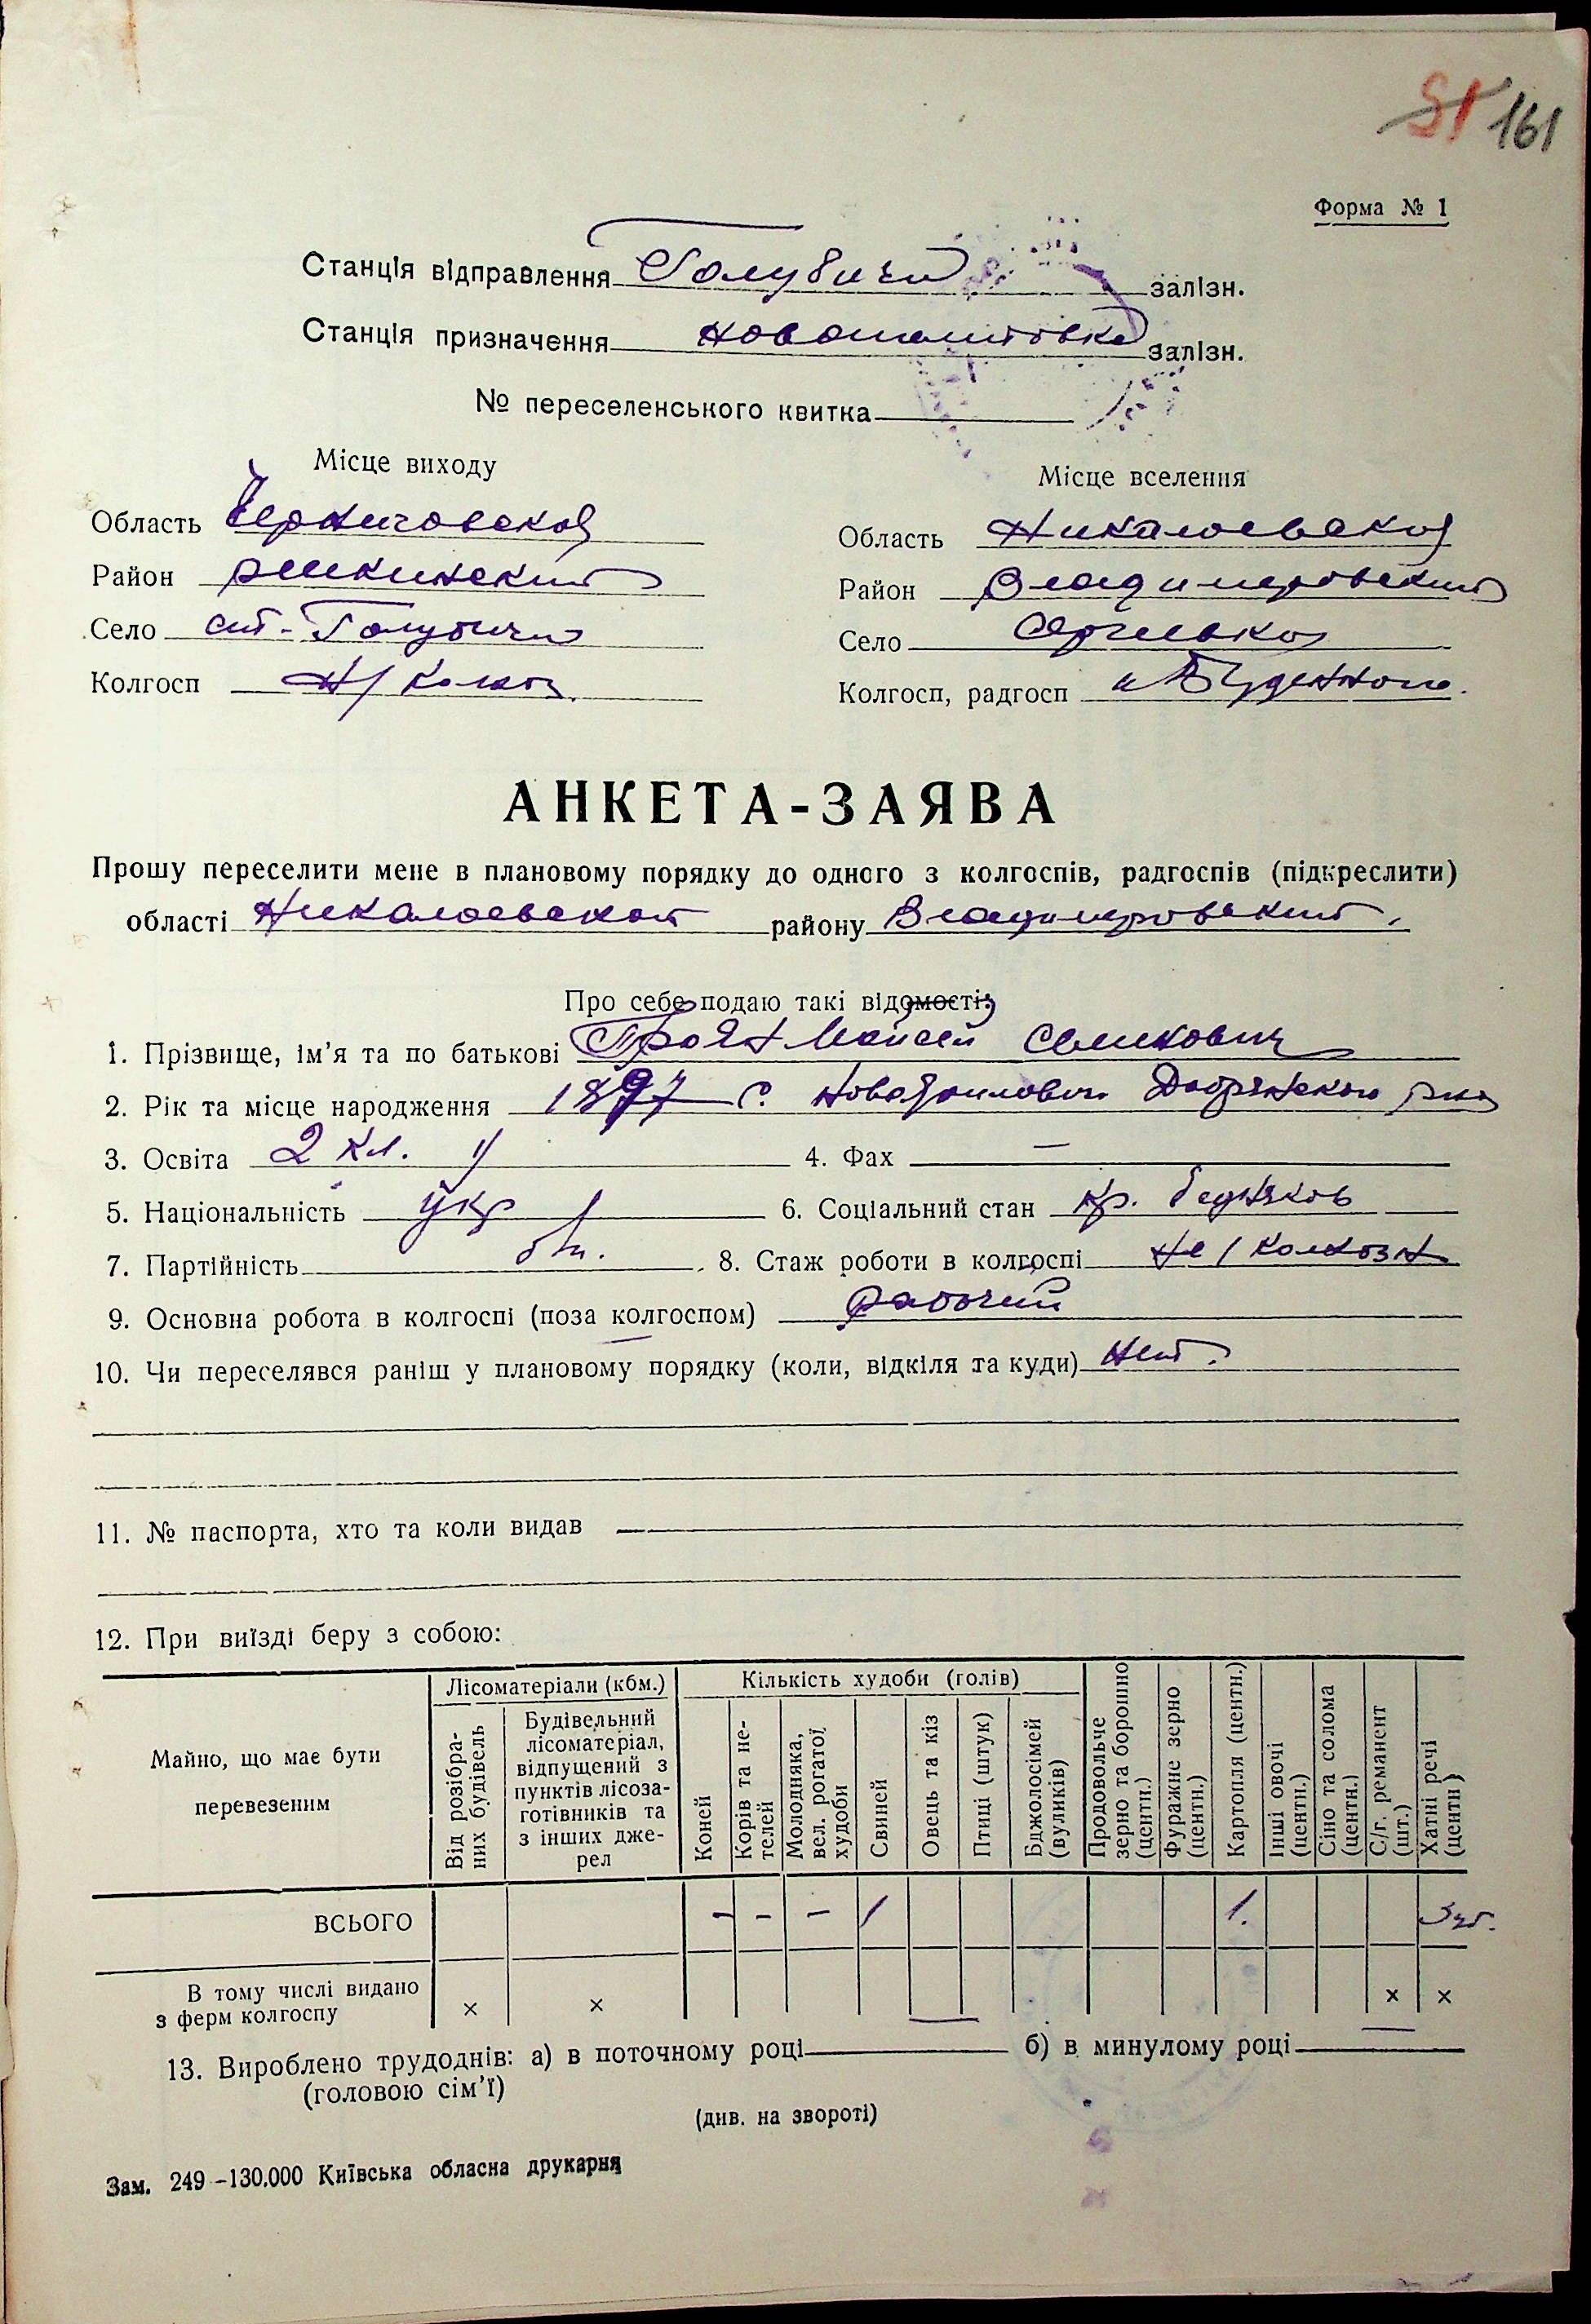 51 161
Форма № 1
Станція відправлення Голубичи залізн.
Станція призначення Новополтовка залізн.
№ переселенського квитка
Місце виходу
Місце вселення
Область Черниговской
Область Николаевской
Район
Район Владимировский
Село ст. Голубичи
Село
Колгосп Н/колхоз.
Колгосп, радгосп Буденного.
АНКЕТА-ЗАЯВА
Прошу переселити мене в плановому порядку до одного з колгоспів, радгоспів (підкреслити)
області Николаевской району Владимировский.
Про себе подаю такі відомості:
1. Прізвище, ім’я та по батькові Троян Моисей
2. Рік та місце народження 1897 с. Добрянского р-на
3. Освіта 2 кл. 4. Фах —
5. Національність укр 6. Соціальний стан кр. бедняков
7. Партійність б/п. 8. Стаж роботи в колгоспі не/колхозн
9. Основна робота в колгоспі (поза колгоспом) Рабочий
10. Чи переселявся раніш у плановому порядку (коли, відкіля та куди) нет.
11. № паспорта, хто та коли видав
12. При виїзді беру з собою:
Майно, що має бути перевезеним
Лісоматеріали (кбм.)
Кількість худоби (голів)
Від розібраних будівель
Будівельний лісоматеріал, відпущений з пунктів лісозаготівників та з інших джерел
Коней
Корів та нетелей
Молодняка, вел. рогатої худоби
Свиней
Овець та кіз
Птиці (штук)
Бджолосімей (вуликів)
Продовольче зерно та борошно (центн.)
Фуражне зерно (центн.)
Картопля (центн.)
Інші овочі (центн.)
Сіно та солома (центн.)
С/г. реманент (шт.)
Хатні речі (центн)
ВСЬОГО – – – 1 1.
В тому числі видано з ферм колгоспу × × × ×
13. Вироблено трудоднів: а) в поточному році — б) в минулому році —
(головою сім’ї)
(див. на звороті)
Зам. 249–130.000 Київська обласна друкарня